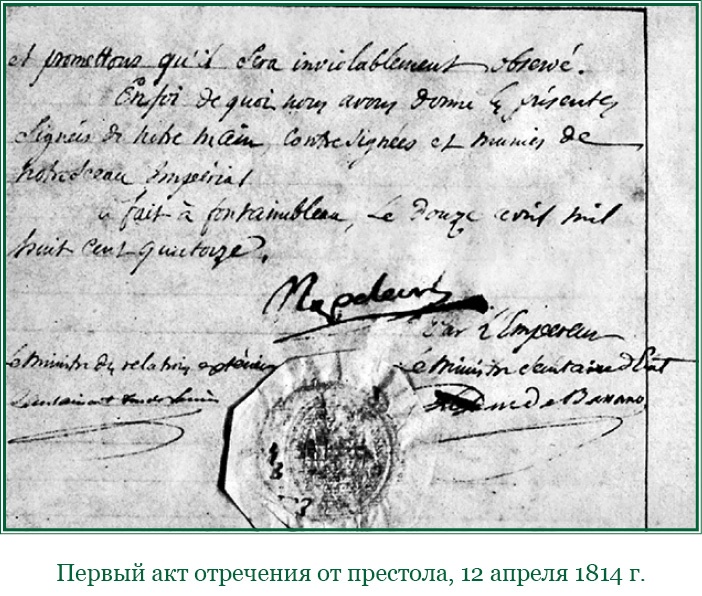 et promettons qu'il sera inviolablement observé.
En foi de quoi nous avons donné les présentes
signées de notre main, contresignées et munies de
notre sceau Impérial
fait à fontainebleau, Le douze avril mil
huit cent quatorze.
Napoleon
Par l'Empereur
Le Ministre des relations extérieures
Le Ministre Secrétaire d'Etat
Duc de Bassano
Первый акт отречения от престола, 12 апреля 1814 г.